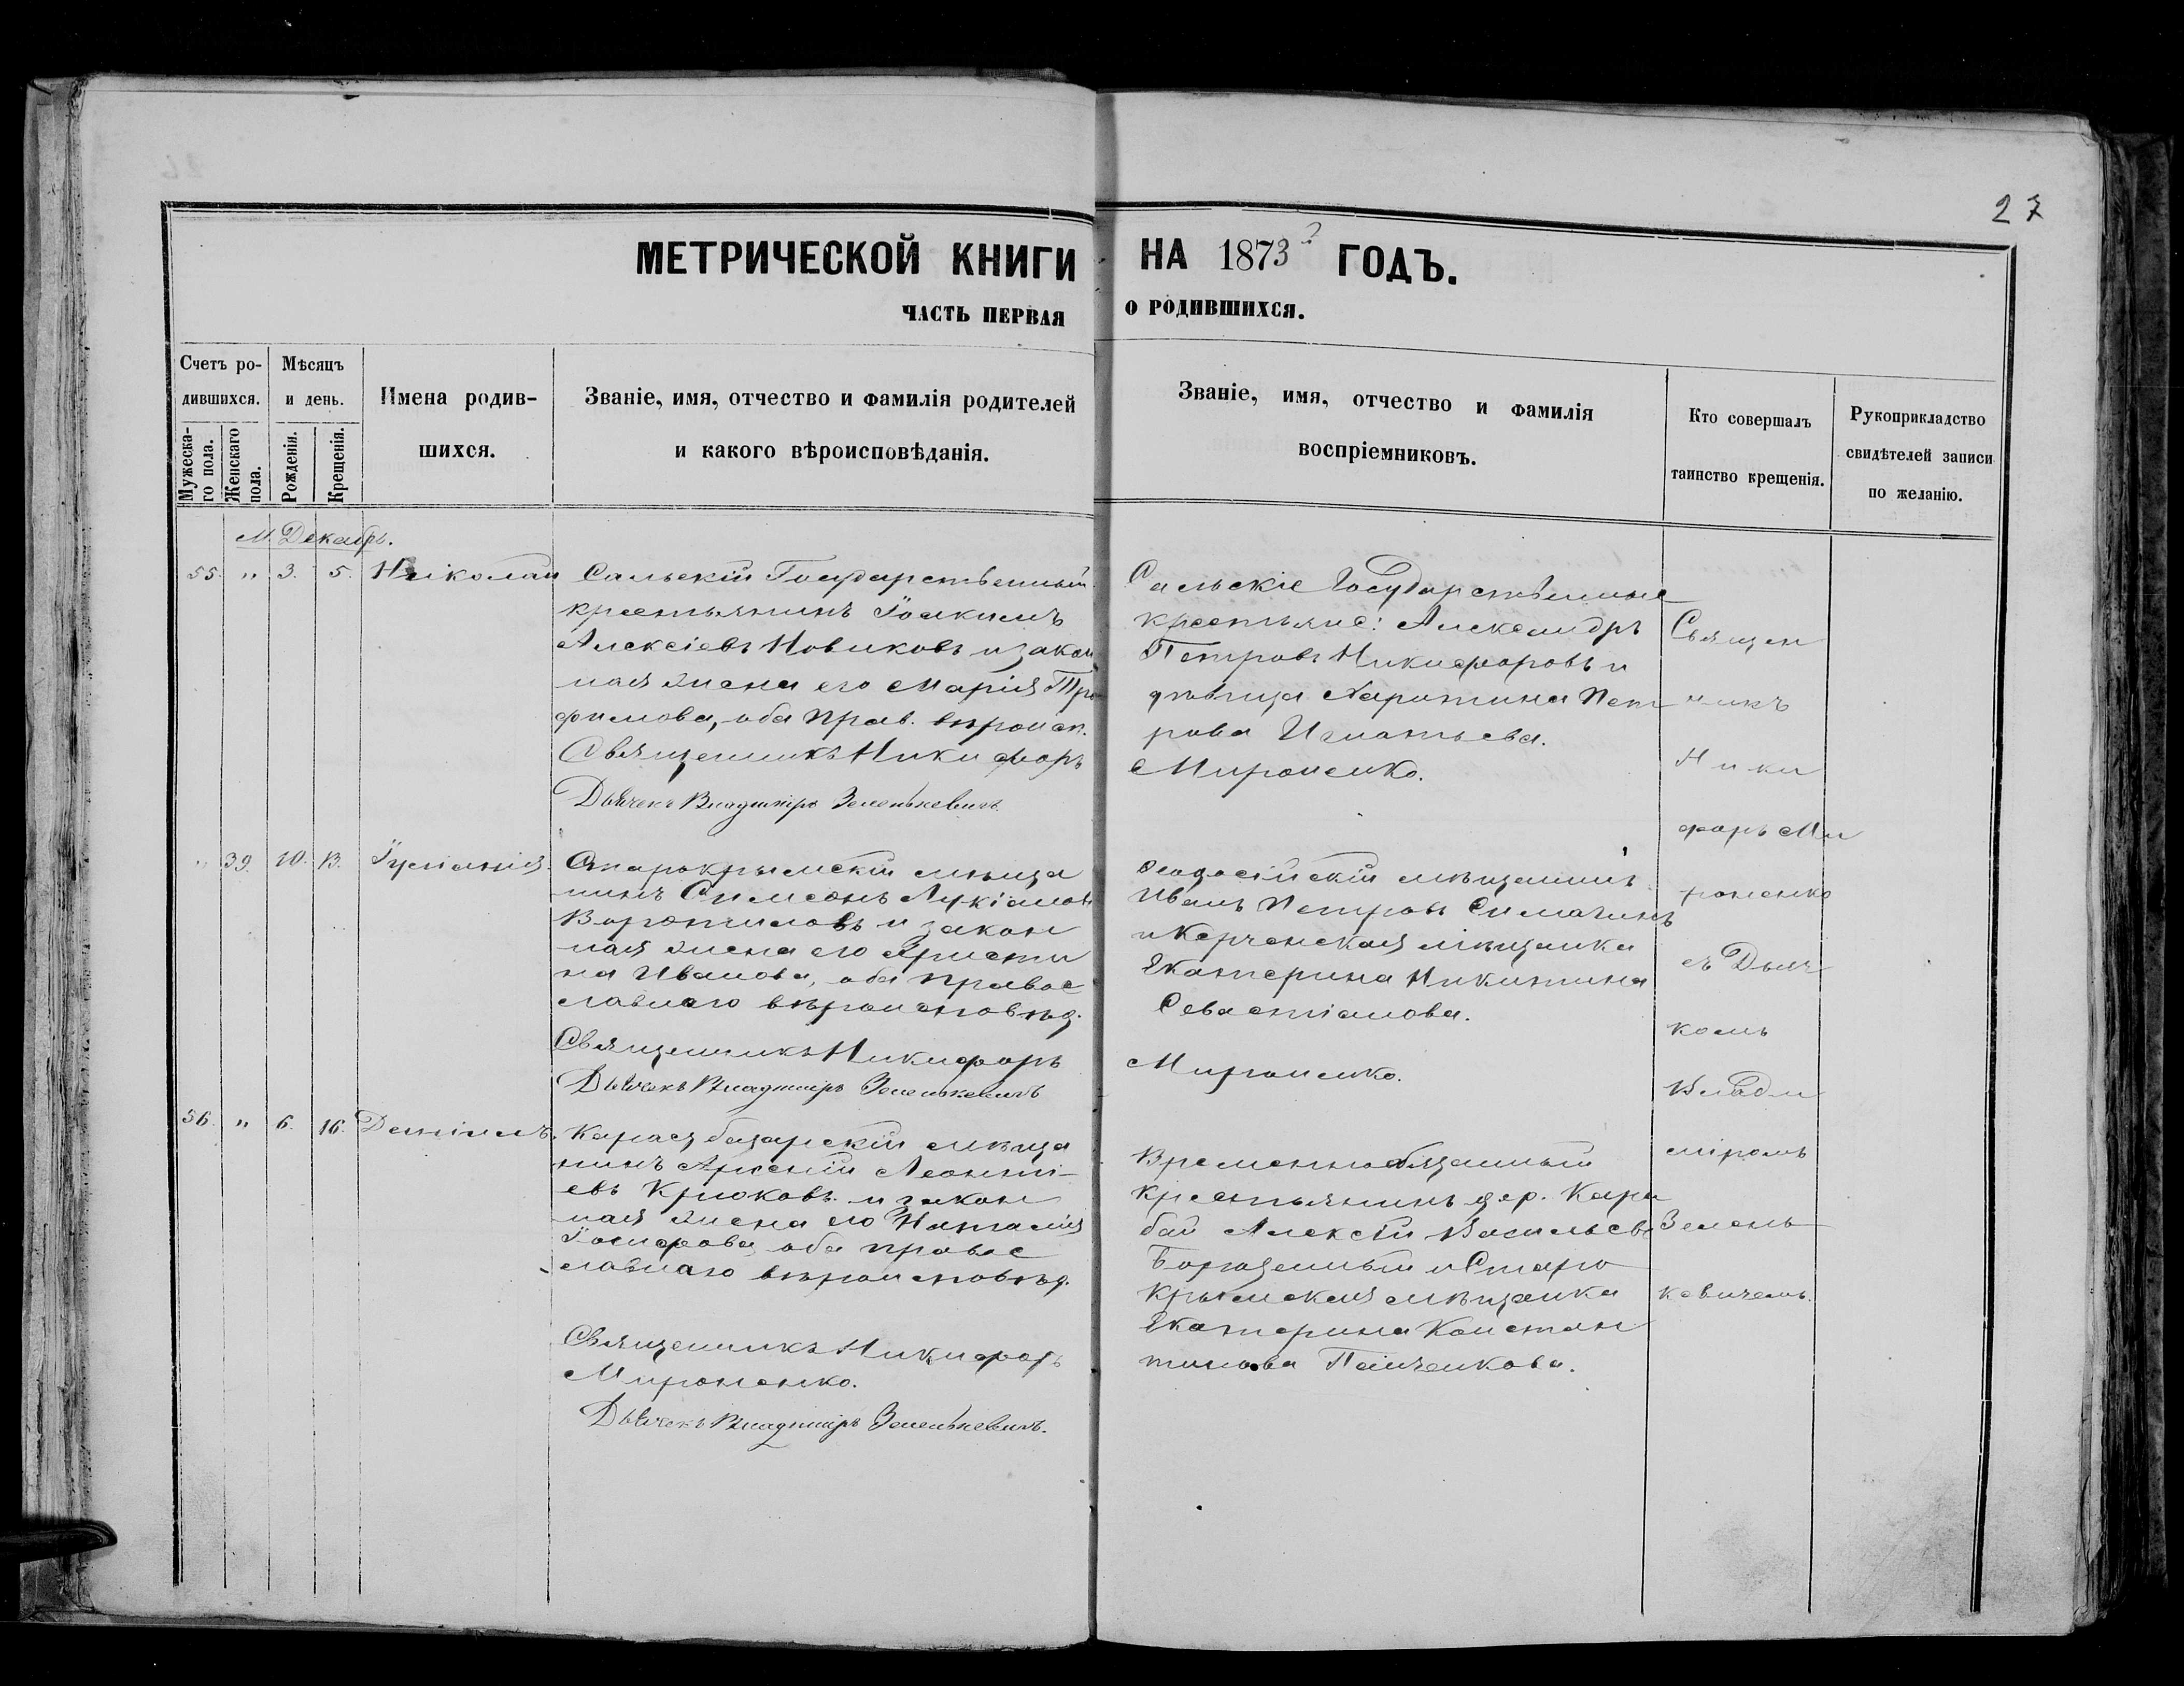 27
МЕТРИЧЕСКОЙ КНИГИ НА 1873 ГОДЪ.
ЧАСТЬ ПЕРВАЯ О РОДИВШИХСЯ.
Счетъ ро-
дившихся.
Мужеска-
го пола.
Женскаго
пола.
Мѣсяцъ
и день.
Рожденія.
Крещенія.
Имена родив-
шихся.
Званіе, имя, отчество и фамилія родителей
и какого вѣроисповѣданія.
Званіе, имя, отчество и фамилія
воспріемниковъ.
Кто совершалъ
таинство крещенія.
Рукоприкладство
свидѣтелей записи
по желанію.
М. Декабрь.
55. " 3. 5. Николай
Сальскій Государственный
крестьянинъ Іоакимъ
Алексіевъ Новиковъ и закон
ная жена его Марія Тро
фимова, оба прав. вѣроисп.
Священникъ Никифоръ
Дьячекъ Владиміръ Зеленькевичъ.
Сальскіе Государственные
крестьяне: Александръ
Петровъ Никифоровъ и
дѣвица Харитина Пет
рова Игнатьева.
Мироненко.
" 39. 10. 13. Іуліанія.
Старокрымскій мѣща
нинъ Симеонъ Лукіановъ
Воротиловъ и закон
ная жена его Христи
на Иванова, оба правос
лавнаго вѣроисповѣд.
Священникъ Никифоръ
Дьячекъ Владиміръ Зеленькевичъ
Феодосійскій мѣщанинъ
Иванъ Петровъ Симагинъ
и Керченская мѣщанка
Екатерина Никитина
Севастіанова.
Мироненко.
56. " 6. 16.
Карасубазарскій мѣща
нинъ Арсеній Леонті-
евъ Крюковъ и закон
ная жена его Наталія
Іосифова, оба правос
лавнаго вѣроисповѣд.
Священникъ Никифоръ
Мироненко.
Дьячекъ Владиміръ Зеленькевичъ.
Временнообязанный
крестьянинъ дер. Кара
бай Алексѣй Васильевъ
и Старо
крымская мѣщанка
Екатерина Констан
тинова Панченкова.
Священ
никъ
Ники
форъ Ми
роненко
съ Дьяч
комъ
Влади
міромъ
Зелень
кевичемъ.